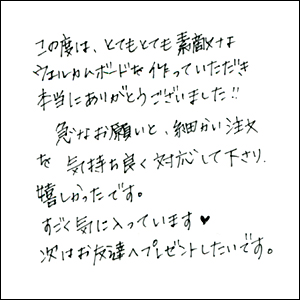 この度は、とてもとても素敵な
ウェルカムボードを作っていただき
本当にありがとうございました!!
急なお願いと、細かい注文
を 気持ち良く対応して下さり、
嬉しかったです。
すごく気に入っています♥
次はお友達へプレゼントしたいです。